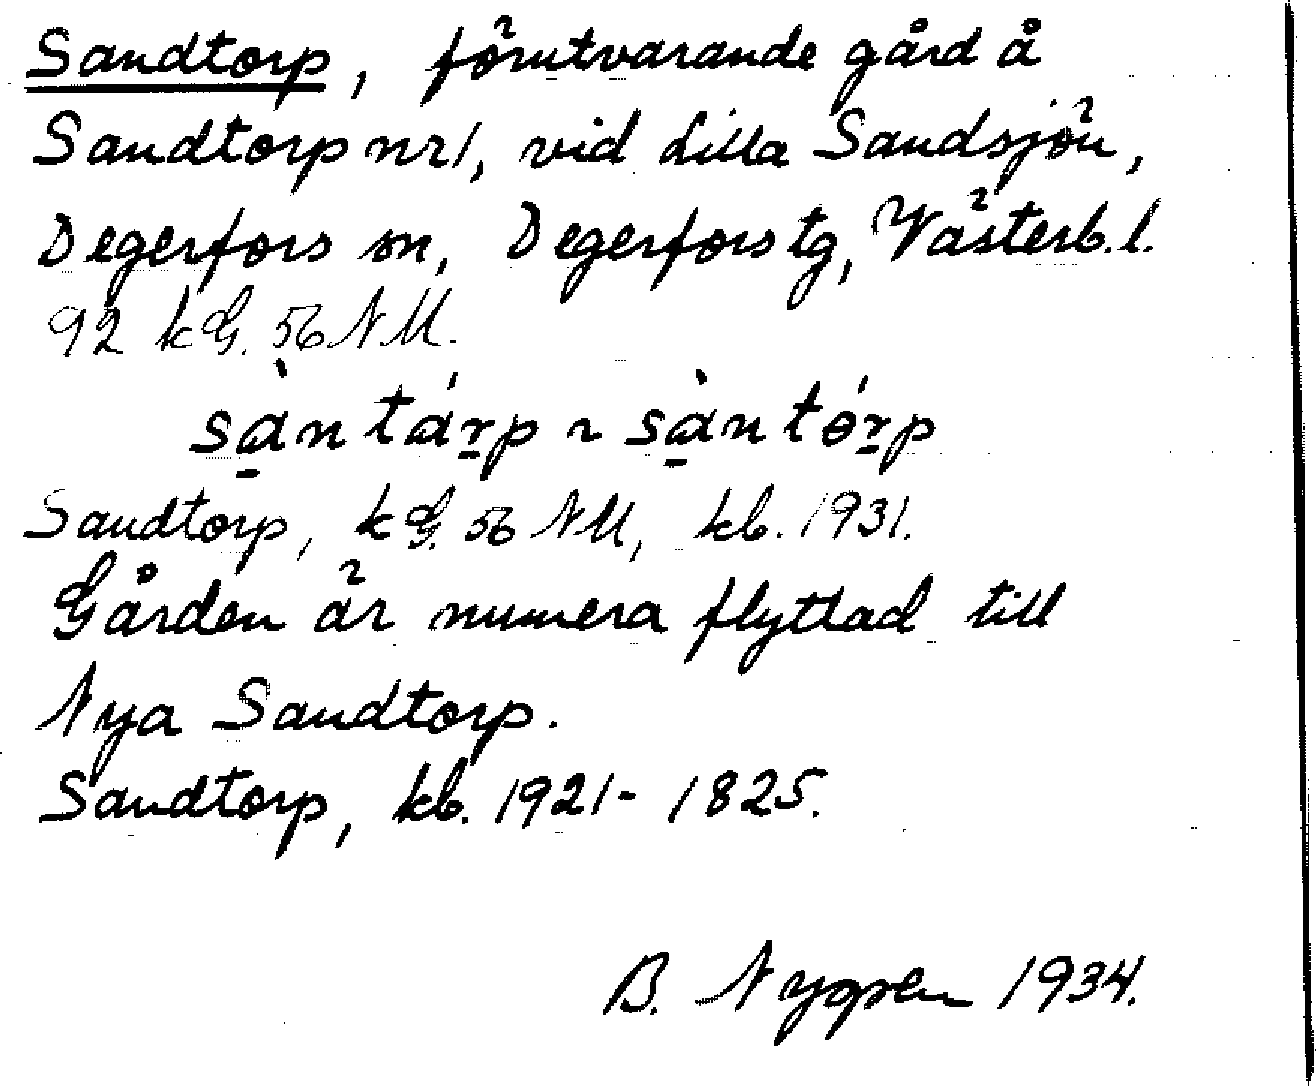 Sandtorp, förutvarande gård å
Sandtorp nr 1, vid Lilla Sandsjön,
Degerfors sn, Degerfors tg, Västerb. l.
92 kG. 56 NM.
sàntárp ~ sàntórp
Sandtorp, kG. 56 NM, kb. 1931.
Gården är numera flyttad till
Nya Sandtorp.
Sandtorp, kb. 1921 - 1825.
B. Nygren 1934.